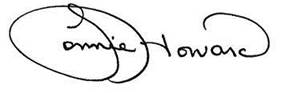 Connie Howard